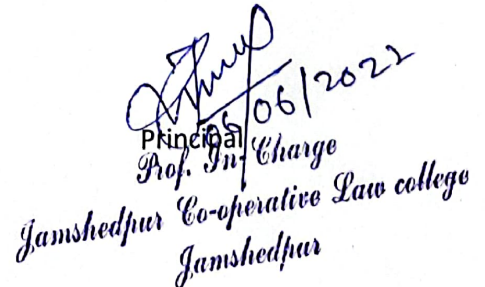 06/06/2022
Principal
Prof. In-Charge
Jamshedpur Co-operative Law college
Jamshedpur